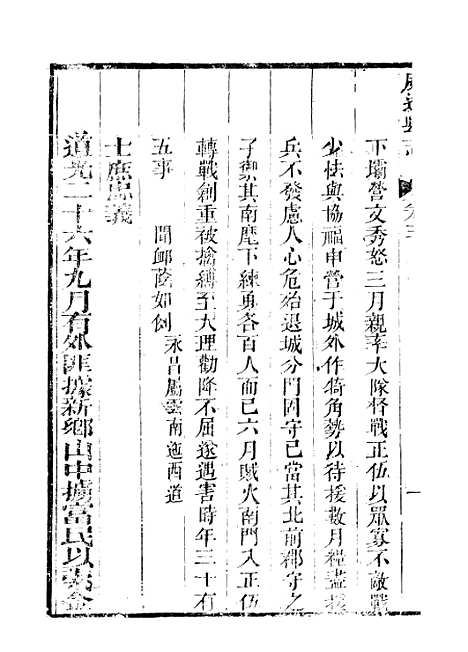 下壩營文秀怒三月親率大隊督戰正伍以眾寡不敵戰
少怯與協福申營于城外作犄角勢以待援數月糧盡援
兵不發慮人心危殆退城分門固守已當其北前郡守之
子禦其南麾下練勇各百人而已六月賊火南門入正伍
轉戰創重被擒縛至大理勸降不屈遂遇害時年三十有
五事聞卹廕如例 永昌屬雲南迤西道
士庶忠義
道光二十六年九月有外匪據新鄉山中擄富民以索金